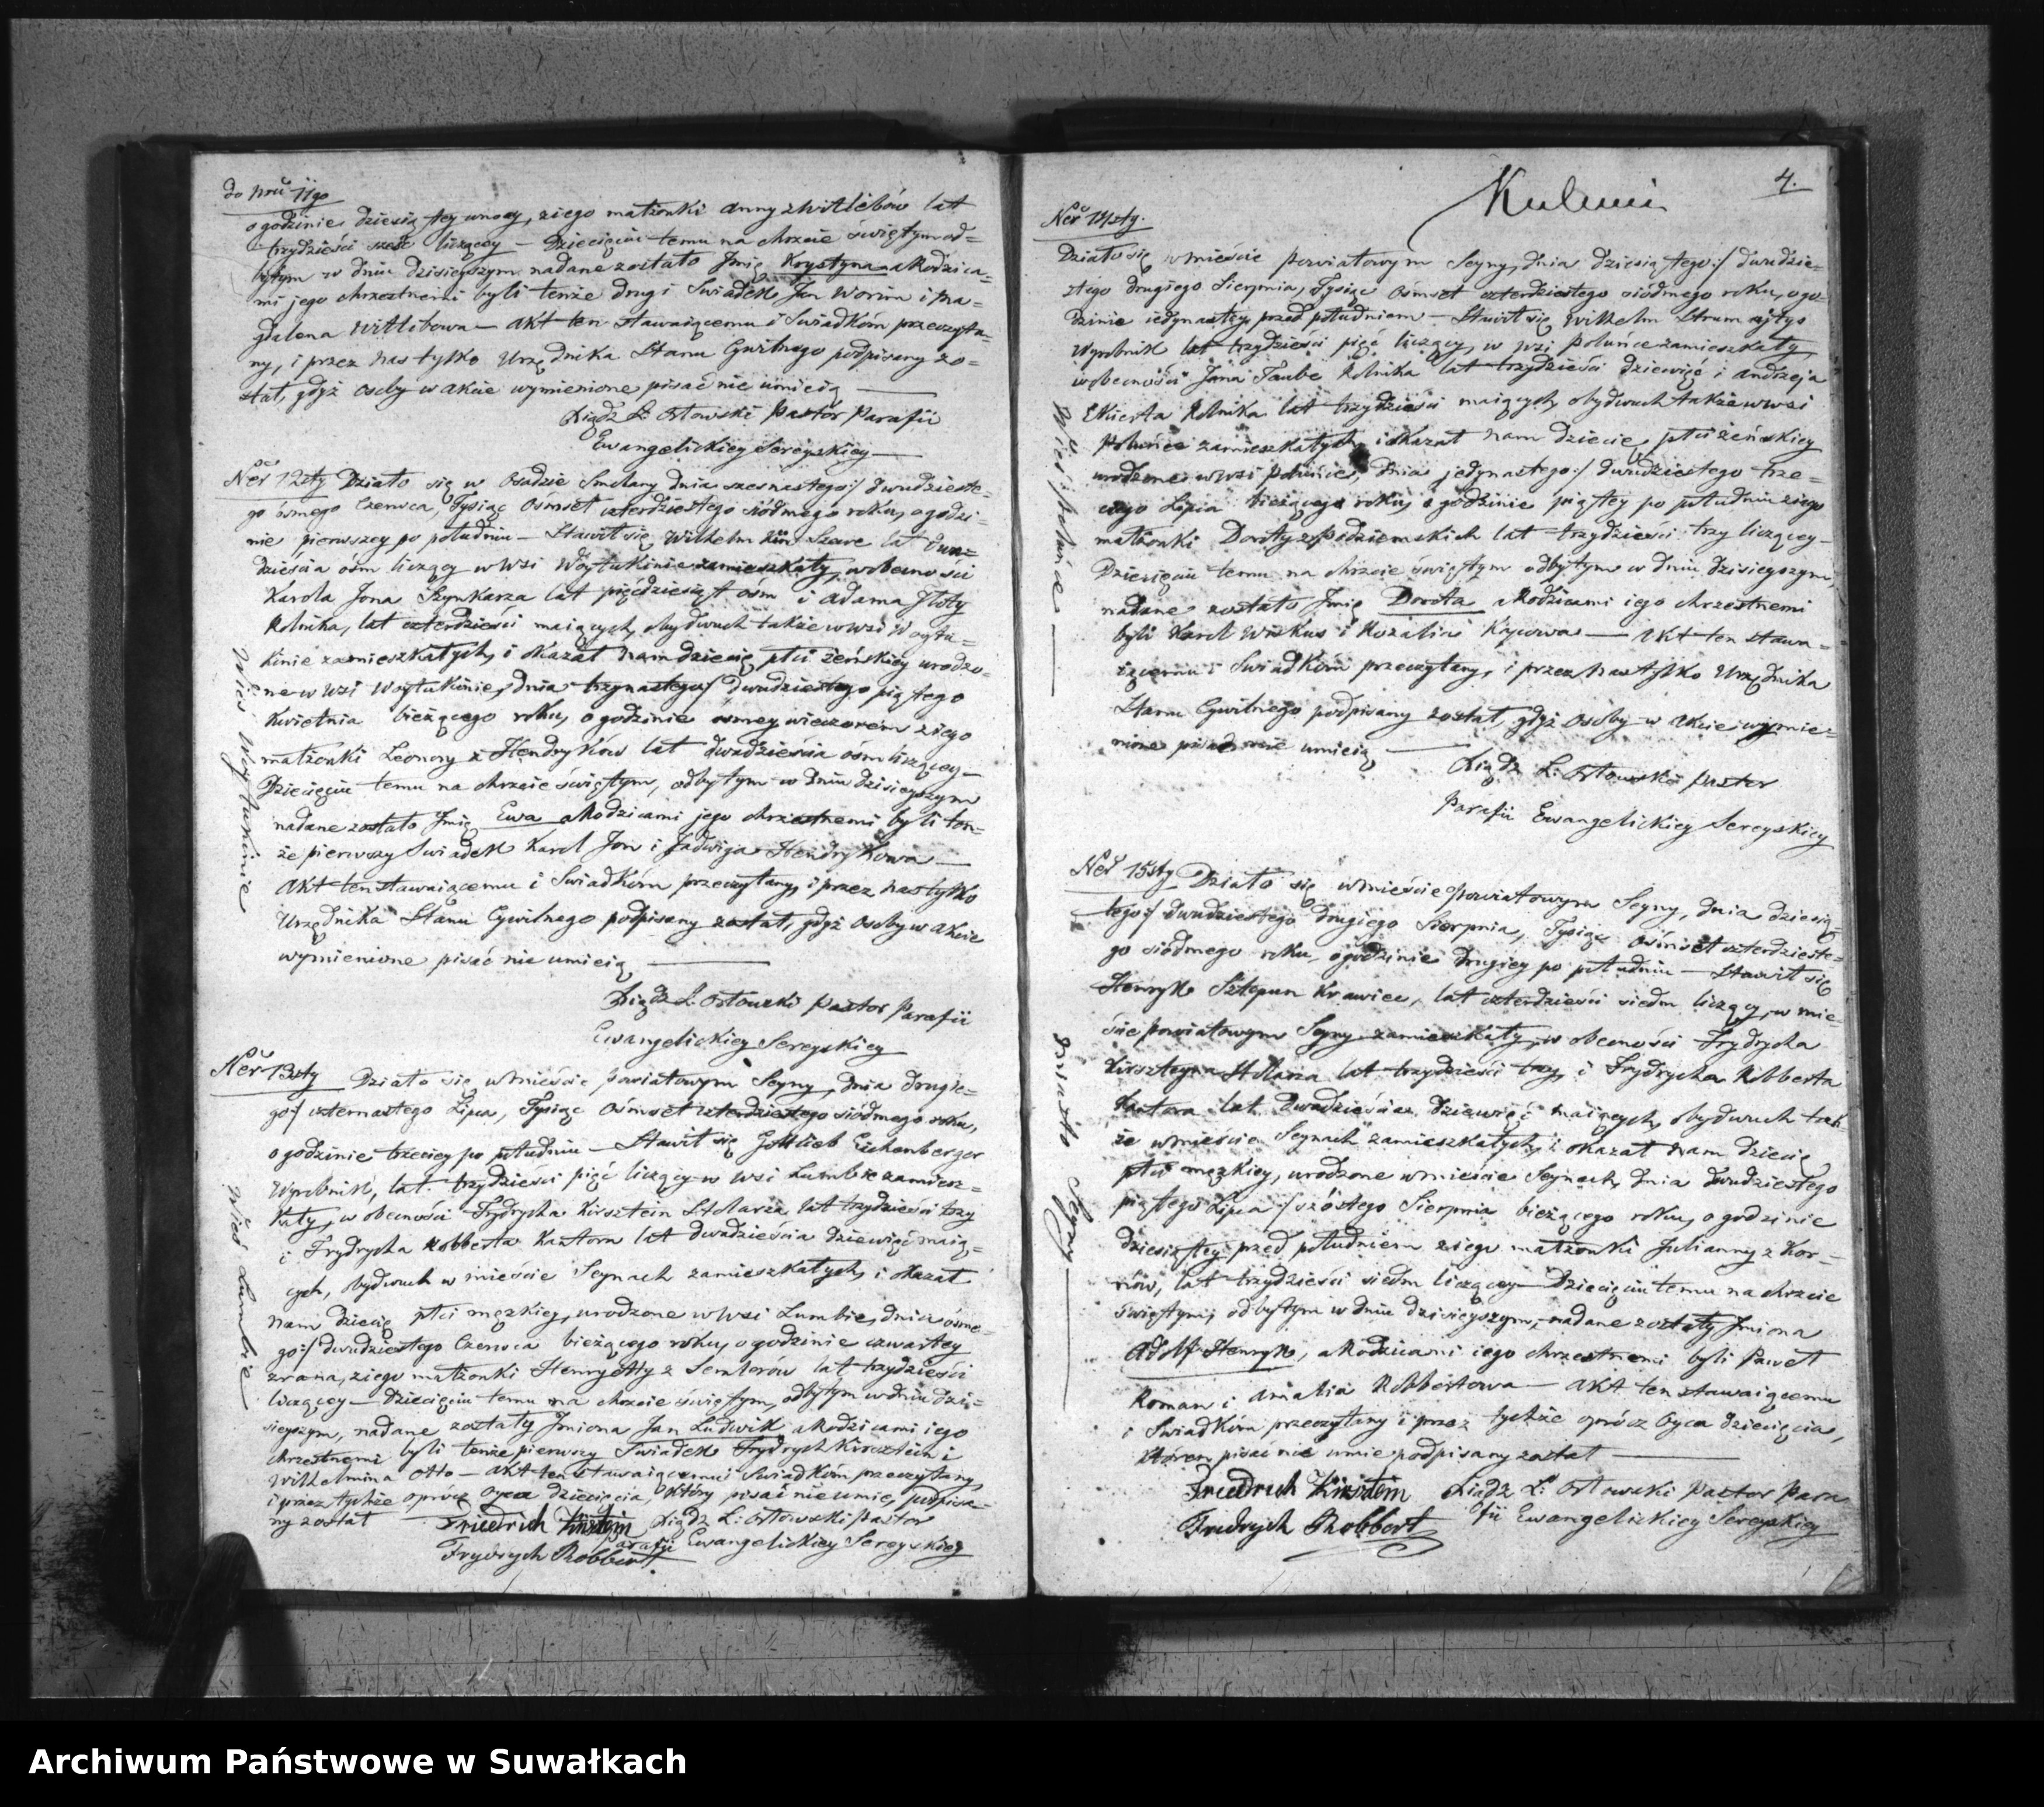 do Nrŭ 11go
o godzinie dziesiątey w nocy, z iego małżonki Anny z Witlibów lat
trzydzieści sześć liczącey — Dziecięciu temu na chrzcie świętym od=
bytym w dniu dzisieyszym nadane zostało Jmię Krystyna a Rodzica=
mi jego chrzestnemi byli tenże drugi Swiadek Jan Worim i Ma=
gdalena Witlibowa — Akt ten stawaiącemu i Swiadkóm przeczyta=
ny, i przez nas tylko Urzędnika Stanu Cywilnego podpisany zo=
stał, gdyż osoby w akcie wymienione pisać nie umieią
Xiądz L: Orłowski Pastor Parafii
Ewangelickiey Sereyskiey
Ner 12sty Działo się w Osadzie Smolany dnia szesnastego:/ dwudzieste=
go ósmego Czerwca, Tysiąc Ośmset czterdziestego siódmego roku, o godzi=
nie pierwszey po południu — Stawił się Wilhelm Szare lat dwa=
dzieścia óśm liczący w wsi Woytukinie zamieszkały, w obecności
Karola Jona Szynkarza lat pięćdziesiąt óśm i Adama Jloty
Rolnika, lat czterdzieści maiących, obydwuch także w wsi Woytu=
kinie zamieszkałych, i okazał nam dziecię płci żeńskiey urodzo=
ne w wsi Woytukinie, dnia trzynastego:/ dwudziestego piątego
Kwietnia bieżącego roku, o godzinie ósmey wieczorem z iego
małżonki Leonory z Hendryków lat dwadzieścia ośm liczącey —
Dziecięciu temu na chrzcie świętym, odbytym w dniu dzisieyszym
nadane zostało Jmię Ewa a Rodzicami jego chrzestnemi byli ten=
że pierwszy Swiadek Karol Jon i Jadwiga Hendrykowa —
Akt ten stawaiącemu i Swiadkóm przeczytany, i przez nas tylko
Urzędnika Stanu Cywilnego podpisany został, gdyż osoby w akcie
wymienione pisać nie umieią
Xiądz L. Orłowski Pastor Parafii
Ewangelickiey Sereyskiey
Wieś Woytukinie
Ner 13sty Działo się w mieście powiatowym Seyny, dnia drugie=
go:/ czternastego Lipca, Tysiąc Ośmset czterdziestego siódmego roku,
o godzinie trzeciey po południu — Stawił się Gottlieb Eichenberger
Wyrobnik, lat trzydzieści pięć liczący w wsi Lumbie zamiesz=
kały, w obecności Frydrycha Kirsztein Stolarza lat trzydzieści trzy
i Frydrycha Robberta Kantora lat dwadzieścia dziewięć maią=
cych, obydwuch w mieście Seynach zamieszkałych, i okazał
nam dziecię płci męzkiey, urodzone w wsi Lumbie, dnia ósme=
go:/ dwudziestego Czerwca bieżącego roku, o godzinie czwartey
z rana, z iego małżonki Henryetty z Semlerów lat trzydzieści
liczącey — Dziecięciu temu na chrzcie świętym, odbytym w dniu dzi=
sieyszym, nadane zostały Jmiona Jan Ludwik a Rodzicami iego
chrzestnemi byli tenże pierwszy Swiadek Frydrych Kirsztein i
Wilhelmina Otto — Akt ten stawaiącemu i Swiadkóm przeczytany,
i przez tychże oprócz Oyca dziecięcia, który pisać nie umie, podpisa=
ny został
Friedrich Kirstein Xiądz L: Orłowski Pastor
Parafii Ewangelickiey Sereyskiey
Frydrych Robbert
Wieś Lumbie
4.
Ner 14sty.
Działo się w mieście powiatowym Seyny, dnia dziesiątego:/ dwudzie=
stego drugiego Sierpnia, Tysiąc Ośmset czterdziestego siódmego roku, o go=
dzinie iedynastey przed południem — Stawił się Wilhelm
Wyrobnik lat trzydzieści pięć liczący, w wsi Połuńce zamieszkały,
w obecności Jana Taube Rolnika lat trzydzieści dziewięć i Andrzeja
Rolnika lat trzydzieści maiących, obydwuch także w wsi
Połuńce zamieszkałych, i okazał nam dziecię płci żeńskiey
urodzone w wsi Połuńce, dnia jedynastego:/ dwudziestego trze=
ciego Lipca bieżącego roku, o godzinie piątey po południu z iego
małżonki Doroty z Podziemskich lat trzydzieści trzy liczącey —
Dziecięciu temu na chrzcie świętym odbytym w dniu dzisieyszym,
nadane zostało Jmię Dorota a Rodzicami iego chrzestnemi
byli Karol Wiskus i Rozalia — Akt ten stawa=
iącemu i Swiadkóm przeczytany, i przez nas tylko Urzędnika
Stanu Cywilnego podpisany został, gdyż osoby w akcie wymie=
nione pisać nie umieią
Xiądz L: Orłowski Pastor
Parafii Ewangelickiey Sereyskiey
Wieś Połuńce
Ner 15sty Działo się w mieście powiatowym Seyny, dnia dziesią=
tego:/ dwudziestego drugiego Sierpnia, Tysiąc Ośmset czterdzieste=
go siódmego roku, o godzinie drugiey po południu — Stawił się
Henryk Krawiec, lat czterdzieści siedm liczący, w mie=
ście powiatowym Seyny zamieszkały, w obecności Frydrycha
Kirszteyna Stolarza lat trzydzieści trzy, i Frydrycha Robberta
Kantora lat dwadzieścia dziewięć maiących, obydwuch tak=
że w mieście Seynach zamieszkałych, i okazał nam dziecię
płci męzkiey, urodzone w mieście Seynach, dnia dwudziestego
piątego Lipca:/ szóstego Sierpnia bieżącego roku, o godzinie
dziesiątey przed południem z iego małżonki Julianny z Kor=
nów, lat trzydzieści siedm liczącey — Dziecięciu temu na chrzcie
świętym, odbytym w dniu dzisieyszym, nadane zostały Jmiona
Adolf Henryk, a Rodzicami iego chrzestnemi byli Paweł
Roman i Amalia Robbertowa — Akt ten stawaiącemu
i Swiadkóm przeczytany i przez tychże oprócz Oyca dziecięcia,
któren pisać nie umie podpisany został
Friedrich Kirstein Xiądz L: Orłowski Pastor Para
fii Ewangelickiey Sereyskiey
Fridrych Robbert
Miasto Seyny
Archiwum Państwowe w Suwałkach